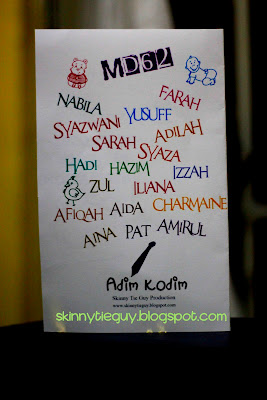 MD62
FARAH
NABILA
YUSUFF
SYAZWANI
ADILAH
SARAH
SYAZA
HADI HAZIM IZZAH
ZUL ILIANA
AFIQAH AIDA CHARMAINE
AINA PAT AMIRUL
Adim Kodim
Skinny Tie Guy Production
www.skinnytieguy.blogspot.com
skinnytieguy.blogspot.com